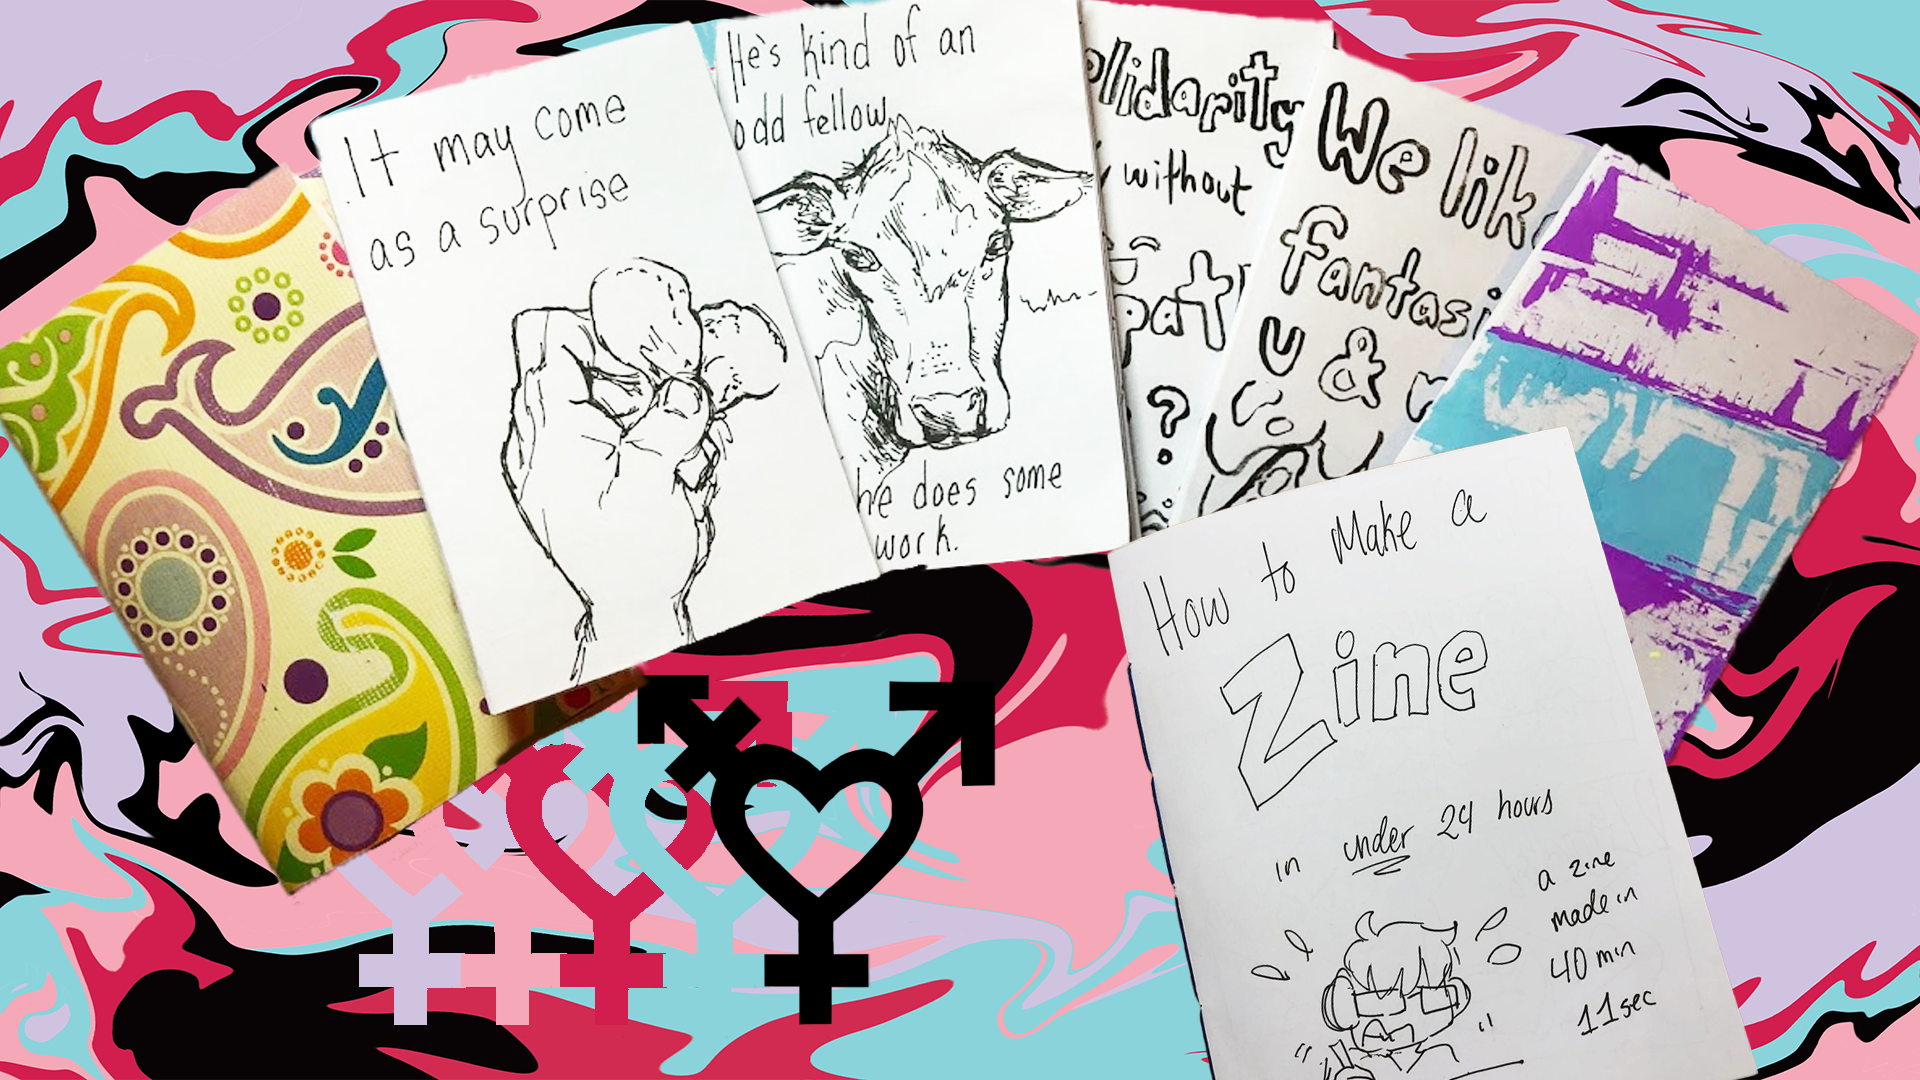 It may come
as a surprise
He's kind of an
odd fellow,
he does some
work.
olidarity
without
pat
?
We like
fantasi
u &
How to Make a
Zine
in under 24 hours
a zine
made in
40 min
11sec